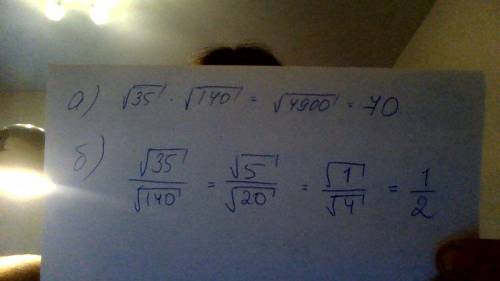 а) √35 · √140 = √4900 = 70
б) √35/√140 = √5/√20 = √1/√4 = 1/2